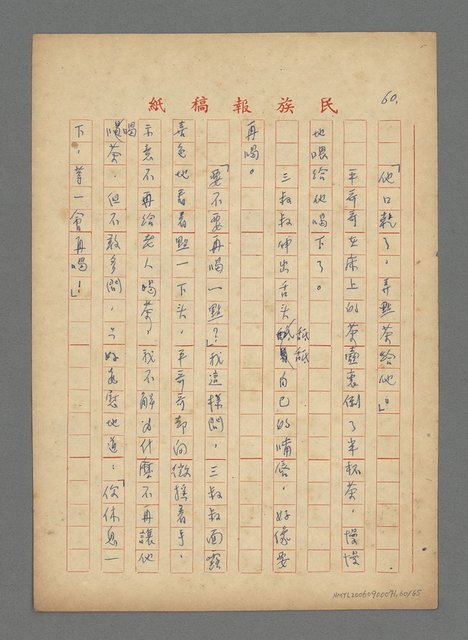 60.
民族報稿紙
「他口乾了，弄點茶給他。」
平哥哥在床上的茶壺裏倒了半杯茶，慢慢
地喂給他喝下了。
三叔叔伸出舌头舐舐自己的嘴唇，好像要
再喝。
「要不要再喝一點？」我這樣問，三叔叔面露
喜色地看着點一下头，平哥哥却向微搖着手，
示意不再給老人喝茶，我不解为什麼不再讓他
喝茶，但不敢多問，只好安慰地道：「你休息一
下，等一會再喝！」
NMTL20060900091,60/65